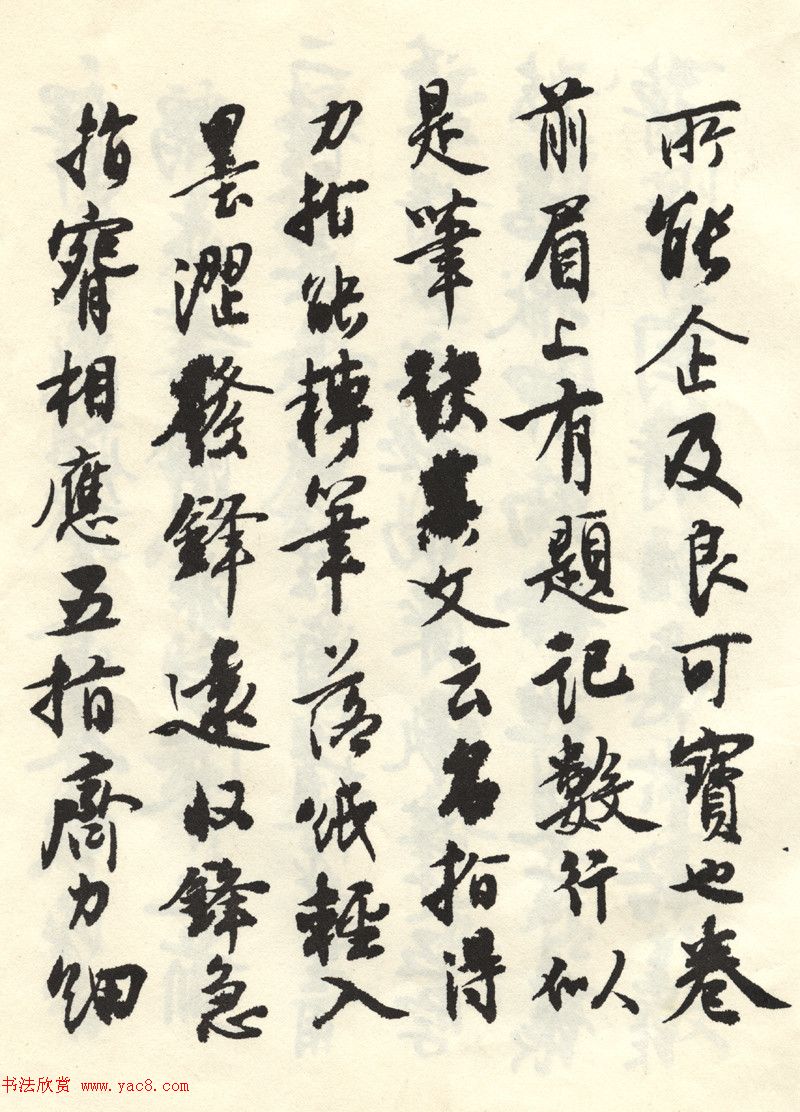 所能企及良可寶也卷
前眉上有題記數行似
是筆訣其文云名指得
力指能轉筆落紙輕入
墨澀發鋒遠收鋒急
指實相應五指齊力細
书法欣赏 www.yac8.com